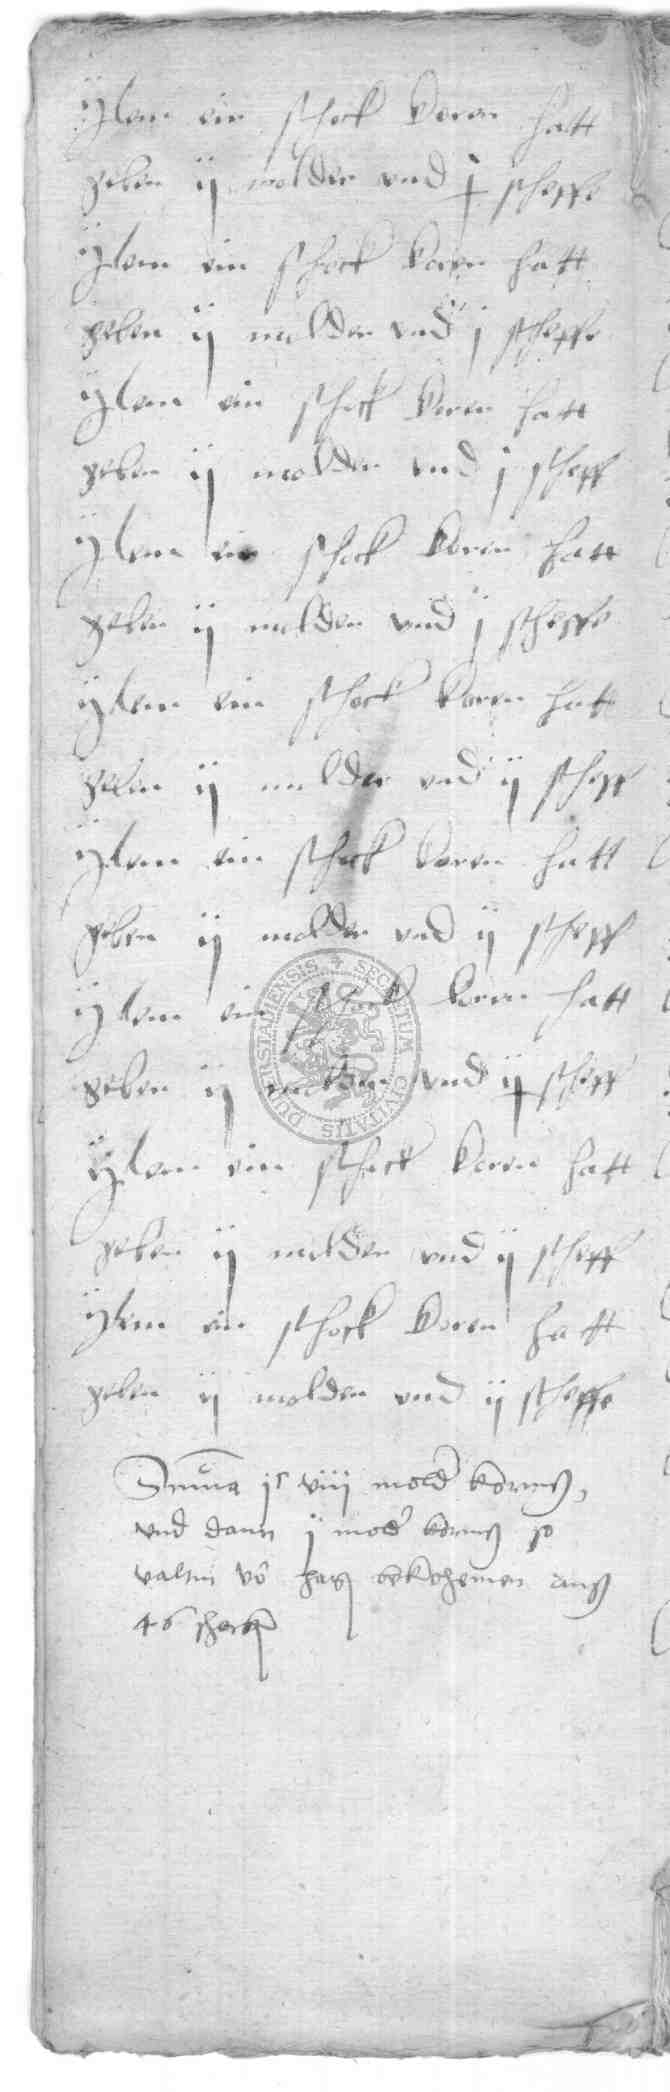 Jtem ein schock koren hatt
geben ij molder vnd j scheffe
Jtem ein schock koren hatt
geben ij molder vnd j scheffe
Jtem ein schock koren hatt
geben ij molder vnd j scheff
Jtem ein schock koren hatt
geben ij molder vnd j scheffe
Jtem ein schock koren hatt
geben ij molder vnd ij scheff
Jtem ein schock koren hatt
geben ij molder vnd ij scheff
Jtem ein schock koren hatt
geben ij molder vnd ij scheff
Jtem ein schock koren hatt
geben ij molder vnd ij scheff
Jtem ein schock koren hatt
geben ij molder vnd ij scheffe
Suma jc viij mold korns,
vnd dann j mold korns so
valtin vo bekohemen
46 schock
SECRETUM CIVITATIS